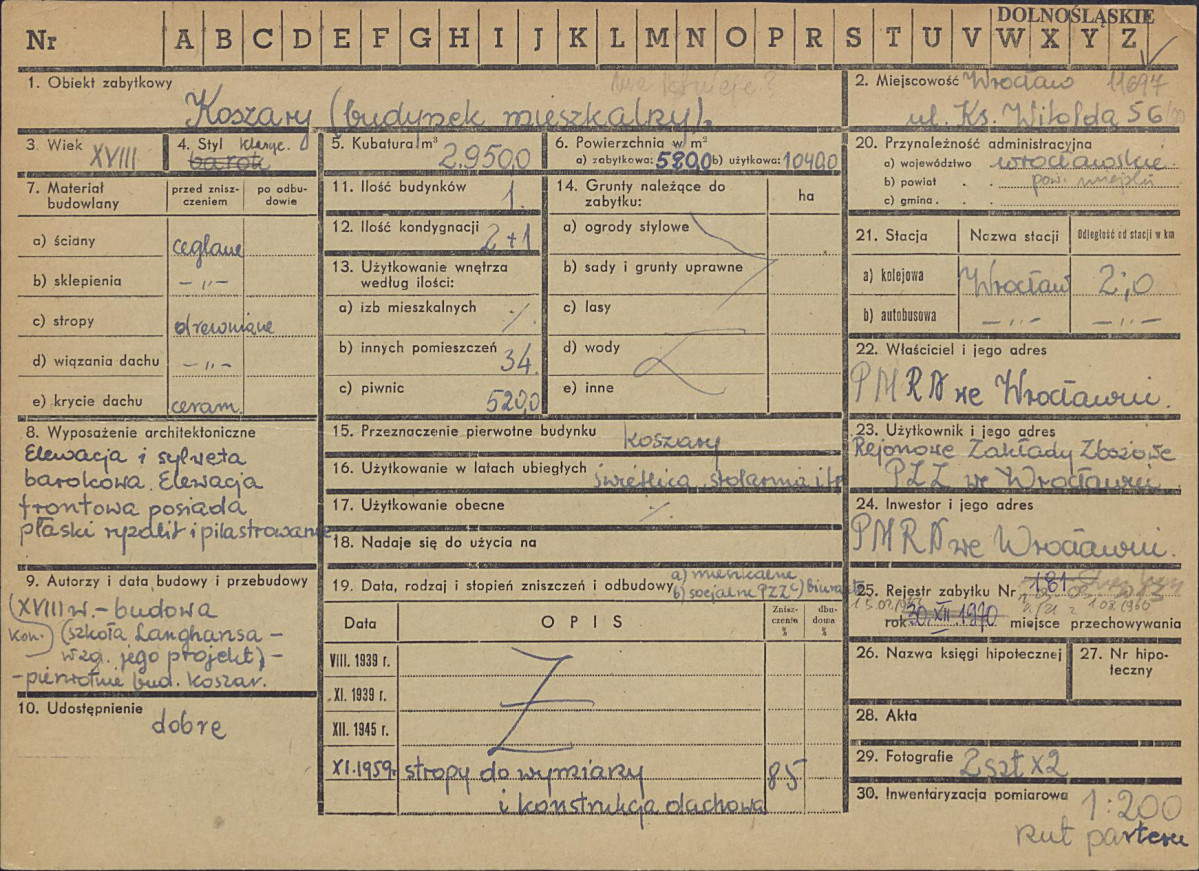 DOLNOŚLĄSKIE
Nr A B C D E F G H I J K L M N O P R S T U V W X Y Z
1. Obiekt zabytkowy
nie istnieje?
Koszary (budynek mieszkalny).
2. Miejscowość Wrocław 11697
ul. Ks. Witolda 56
3. Wiek XVIII
4. Styl klasyc.
barok
5. Kubatura m³ 2.950,0
6. Powierzchnia w m²
a) zabytkowa: 580,0 b) użytkowa: 1040,0
20. Przynależność administracyjna
a) województwo wrocławskie
b) powiat pow. miejski
c) gmina
7. Materiał budowlany
przed zniszczeniem
po odbudowie
a) ściany ceglane
b) sklepienia -„-
c) stropy drewniane
d) wiązania dachu -„-
e) krycie dachu ceram.
11. Ilość budynków 1.
12. Ilość kondygnacji 2+1
13. Użytkowanie wnętrza
według ilości:
a) izb mieszkalnych ./.
b) innych pomieszczeń 34.
c) piwnic 520,0
14. Grunty należące do
zabytku:
ha
a) ogrody stylowe
b) sady i grunty uprawne
c) lasy
d) wody
e) inne
21. Stacja Nazwa stacji Odległość od stacji w km
a) kolejowa Wrocław 2,0
b) autobusowa -„- -„-
22. Właściciel i jego adres
PMRN we Wrocławiu.
8. Wyposażenie architektoniczne
Elewacja i sylweta
barokowa. Elewacja
frontowa posiada
płaski ryzalit i pilastrowanie
15. Przeznaczenie pierwotne budynku koszary
16. Użytkowanie w latach ubiegłych świetlica, stolarnia i t.
17. Użytkowanie obecne ./.
18. Nadaje się do użycia na
a) mieszkalne
b) socjalne PZZ c) biurowe
23. Użytkownik i jego adres
Rejonowe Zakłady Zbożowe
PZZ we Wrocławiu
24. Inwestor i jego adres
PMRN we Wrocławiu.
9. Autorzy i data budowy i przebudowy
(XVIII w. - budowa
kon. (szkoła Langhansa -
wzg. jego projekt) -
- pierwotnie bud. koszar.
10. Udostępnienie
dobre
19. Data, rodzaj i stopień zniszczeń i odbudowy
Data OPIS Zniszczenie % dbudowa %
VIII. 1939 r.
XI. 1939 r.
XII. 1945 r.
XI. 1959r. stropy do wymiany 85
i konstrukcja dachowa
25. Rejestr zabytku Nr 181
rok 30.XII.1970 miejsce przechowywania
26. Nazwa księgi hipotecznej
27. Nr hipoteczny
28. Akta
29. Fotografie 2 szt x 2
30. Inwentaryzacja pomiarowa 1:200
rzut parteru